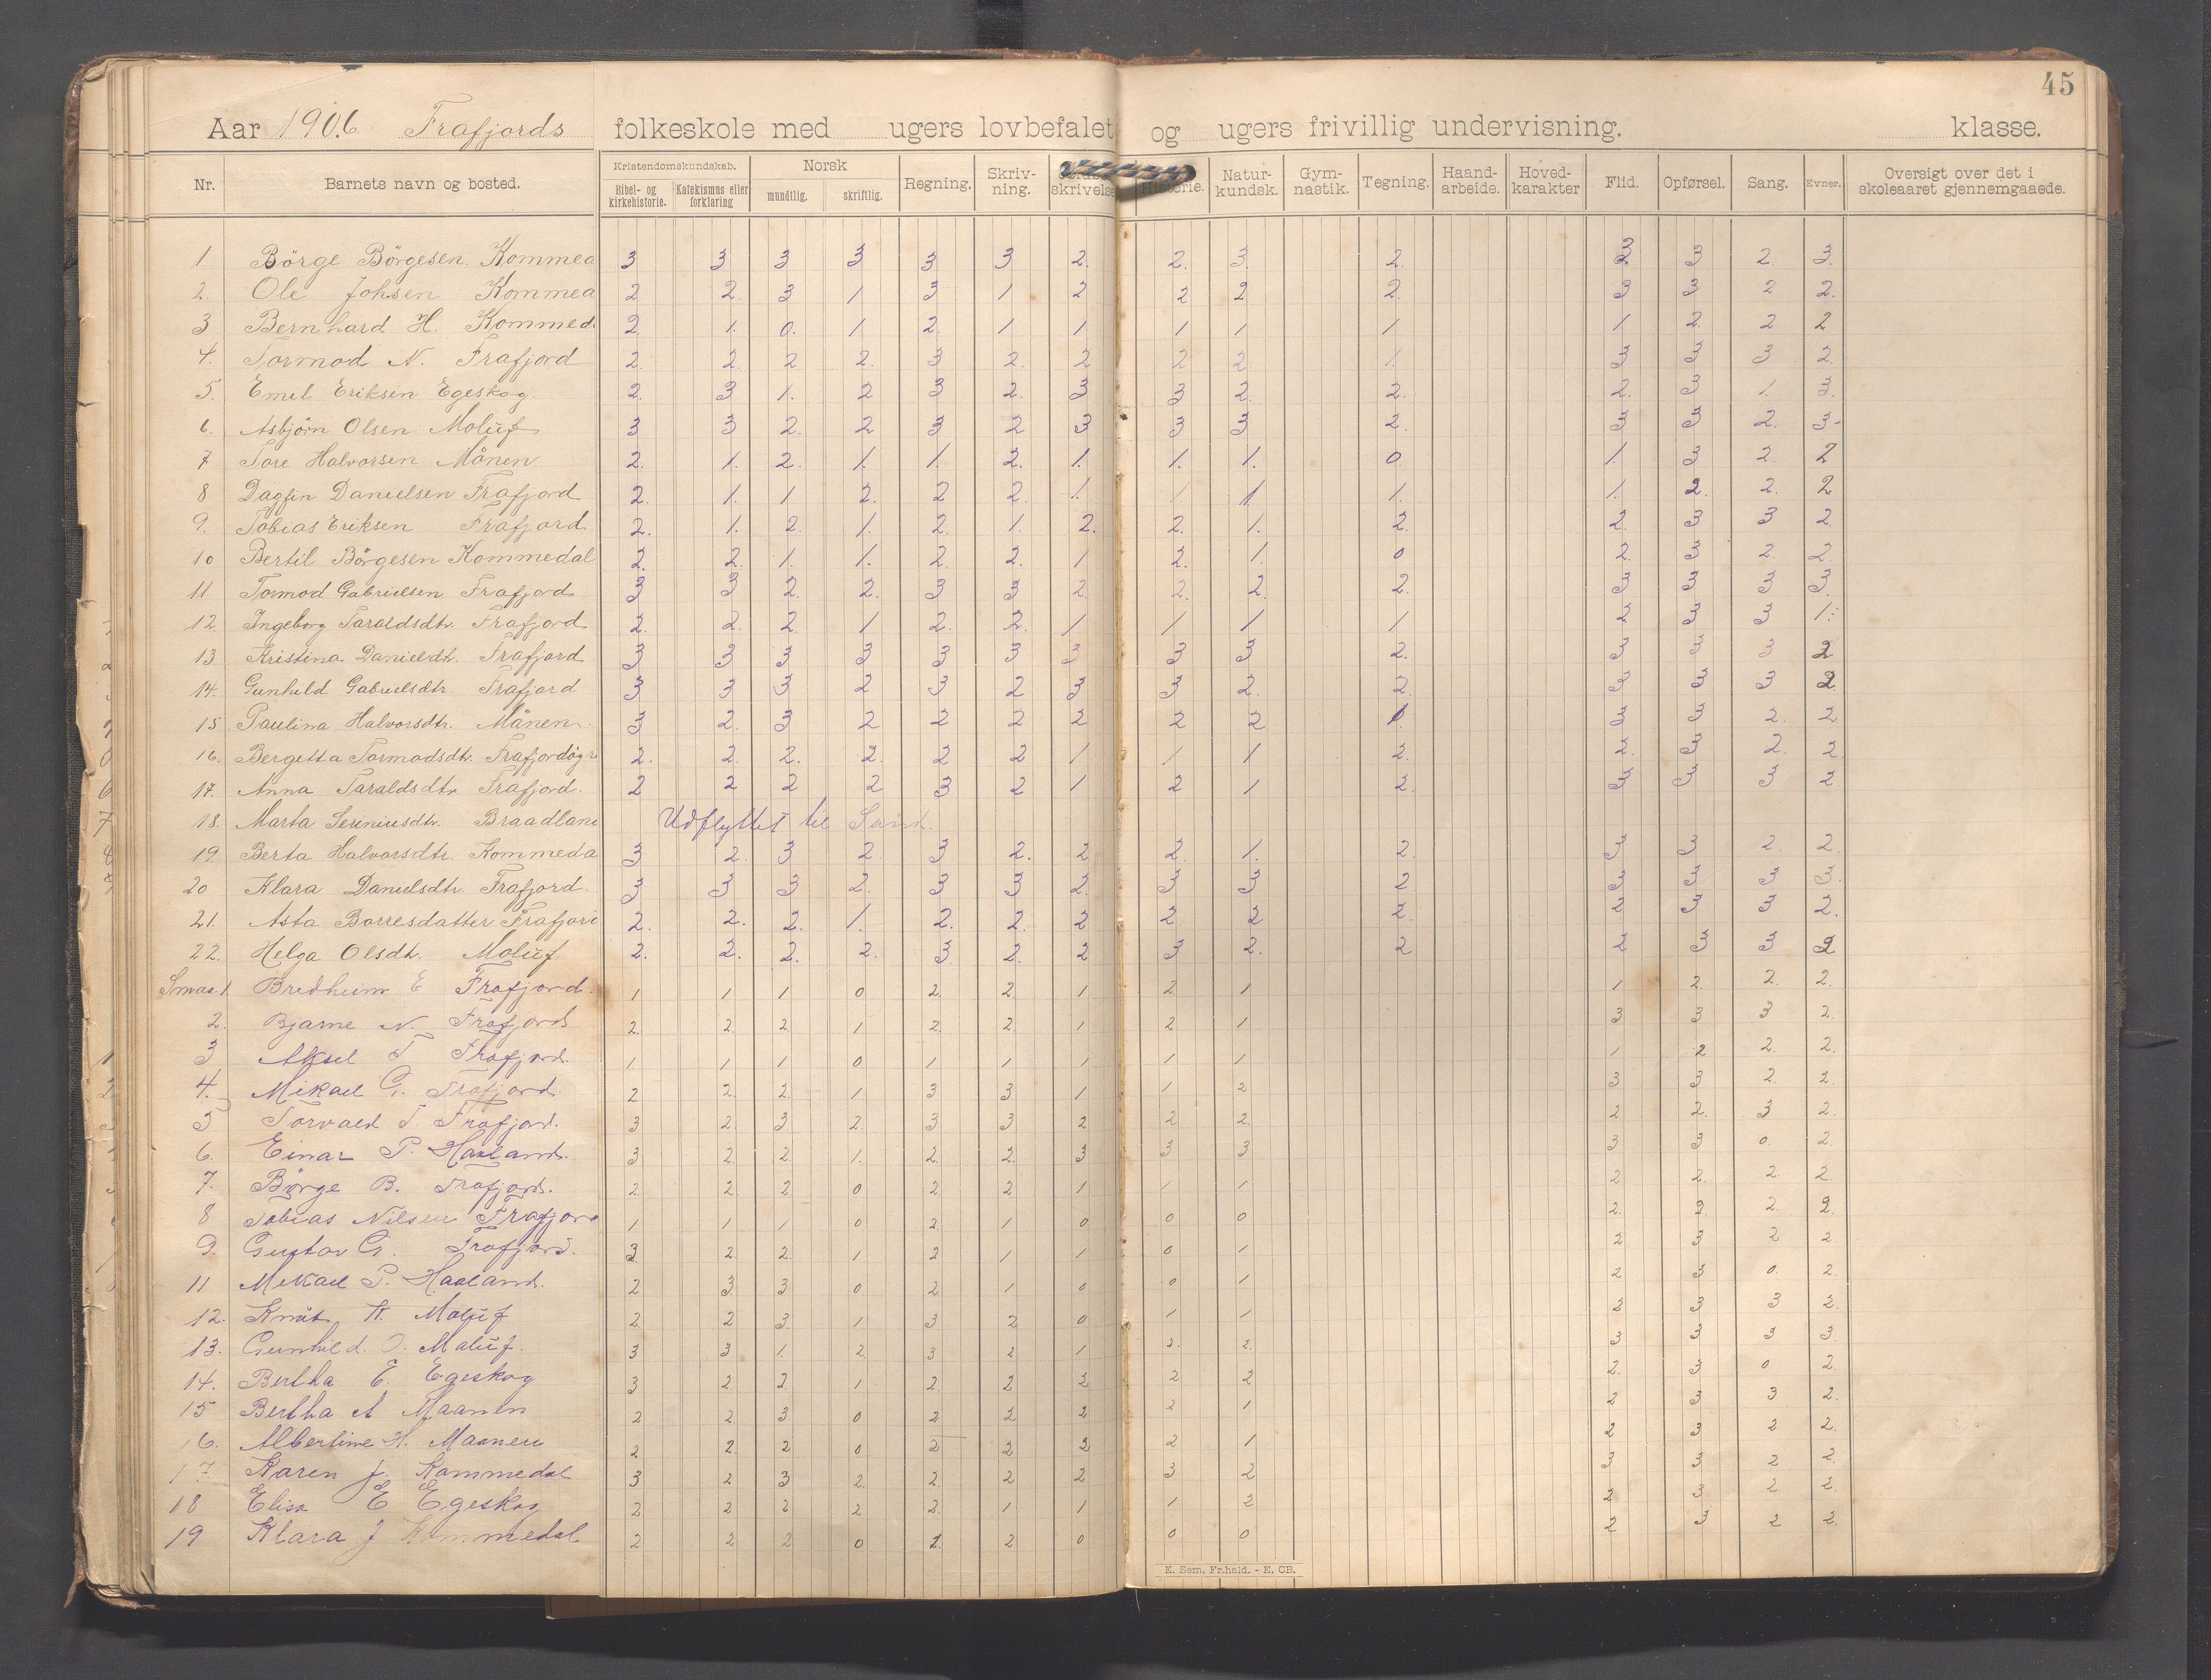 45
Aar 1906 Frafjords folkeskole med ugers lovbefalet og ugers frivillig undervisning. klasse.
Nr. Barnets navn og bosted. Kristendomskundskab. Bibel- og kirkehistorie. Katekismus eller forklaring Norsk mundtlig. skriftlig. Regning. Skriv-ning. skrivelse Historie. Natur-kundsk. Gym-nastik. Tegning. Haand-arbeide. Hoved-karakter Flid. Opførsel. Sang. Evner. Oversigt over det i skoleaaret gjennemgaaede.
1. Börge Börgesen Kommed 3 3 3 3 3 3 2. 2. 3. 2. 3 3 2. 3.
2. Ole Johsen Kommed 2 2. 3 1 3 1 2 2 2 2. 3 3 2 2.
3 Bernhard H. Kommed 2. 1. 0. 1 2. 1 1 1 1 1 1 2 2 2
4. Tormod N. Frafjord 2. 2 2 2. 3 2. 2 2 2 1. 3 3 3 2.
5. Emil Eriksen Egeskog. 2. 3 1. 2 3 2. 3 3 2. 2. 2. 3 1. 3.
6. Asbjörn Olsen Moluf 3 3 2. 2 3 2 3 3 3 2. 3 3 2. 3-
7 Tore Halvorsen Månen 2. 1. 2. 1. 1. 2. 1. 1. 1. 0. 1. 3 2. 2
8 Dagfin Danielsen Frafjord 2. 1. 1 2. 2 2. 1. 1 1 1. 1. 2. 2. 2
9. Tobias Eriksen Frafjord. 2. 1. 2. 1. 2. 1. 2. 2. 1. 2. 2. 3 3 2.
10 Bertil Börgesen Kommedal 2. 2. 1. 1. 2 2. 1 2. 1. 0 2. 3 2. 2.
11. Tormod Gabrielsen Frafjord 3 3 2. 2. 3 3 2. 2. 2. 2. 3 3 3 3.
12. Ingeborg Taraldsdtr. Frafjord 2. 2. 2. 1 2. 2. 1 1 1 1 2 3 3 1.
13 Kristina Danieldtr. Frafjord 3 3 3 3 3 3 3 3 3 2. 3 3 3 2
14. Gunhild Gabrielsdtr. Frafjord 3 3 3 2 3 2 3 3 2. 2. 3 3 3 2.
15. Paulina Halvorsdtr. Månen. 3 2. 3 2 2 2 2 2 2 1. 3 3 2. 2
16. Bergitta Tormodsdtr. 2. 2. 2. 2. 2 2 1 1 1 2. 2. 3 2. 2
17. Anna Taraldsdtr Frafjord. 2 2 2 2 3 2 1 2 1 2. 3 3 3 2
18. Marta Serinusdtr. Braadland Udflyttet til Sand.
19. Berta Halvorsdtr. Kommeda 3 2. 3 2. 3 2. 2 2. 1. 2. 3 3 2. 2.
20 Klara Danielsdtr. Frafjord. 3 3 3 2. 3 3 2. 3 3 2 3 3 3 3.
21. Asta Borresdatter Frafjord 2. 2. 2. 1. 2. 2. 2 2 2 2. 2 3 3 2.
22. Helga Olsdtr. Moluf 2. 2. 2. 2. 3. 2. 2 3 2. 2 2 3 3 2
Smaa 1. Bredheim E Frafjord. 1 1 1 0 2. 2. 1 2 1 1 2. 2. 2.
2. Bjarne N. Frafjord 2. 2. 2 1 2. 2. 1 2 1 3 3 3 2.
3 Aksel T Frafjord. 1 1 1 0 1 1 1 1 1 1 2 2. 2.
4. Mikael G. Frafjord. 2 2. 2. 1 3 3 1 1 2 3 3 2. 2.
5 Torvald T. Frafjord. 3 2. 3 2. 3 3 2 2 2. 2. 2. 3 2.
6. Einar P. Haaland. 3 2. 2. 1. 2. 2. 3 3 3 3 3 0. 2.
7. Börge B. Frafjord. 2. 2. 2 0 2. 2 1 1 1 2 2. 2 2.
8 Tobias Nilsen Frafjord 1 1 1 0 2. 1 0 0 0 2. 2. 2. 2.
9. Gustav G. Frafjord. 3 2. 2. 1 2 1 1 0 1 2 3 2 2.
11 Mikael P. Haaland. 2 3 3 0 2 1 0 0 1 2 3 0. 2.
12. Knut H. Moluf 2. 2 3. 1 3 2 0 1 1 2 3 3 2.
13. Gunhild. O. Maluf. 3 3 1. 2. 3 2 1 2. 2. 3 3 3 3.
14. Bertha E. Egeskog 3 2. 2. 1 2. 2 2 2 2 2. 3 0 2.
15 Bertha A Maanen 2 2. 3 0 2 2 2 2 1 2 3 3 2.
16. Albertine H. Maanen 2 2. 2 0 2 2 2 2 1 2 3 2 2.
17. Karen J. Kommedal 3 2 3 2. 2. 2 2 3 2 3 3 2 2.
18 Elisa E Egeskog 2 2 2 2 2. 1 1 1 2 2 3 2 2.
19 Klara J Kommedal 2 2 2 0 2. 2 0 0 0 2 3 2 2.
E. Sem, Fr.hald. - E. CB.